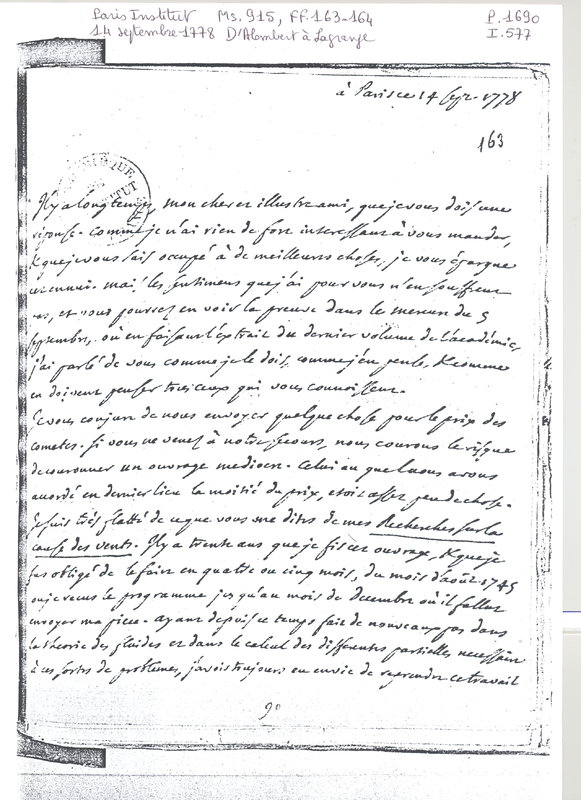 Paris Institut Ms. 915, FF. 163-164 P. 1690
14 septembre 1778 D'Alembert à Lagrange I. 577
à Paris ce 14 sepr. 1778
163
Il y a longtemps, mon cher et illustre ami, que je vous dois une
réponse. comme je n'ai rien de fort interessant à vous mander,
& que je vous sais occupé à de meilleures choses, je vous épargne
cet ennui. mais les sentimens que j'ai pour vous n'en souffrent
pas, et vous pourrez en voir la preuve dans le mercure du 5
septembre, où en faisant l'extrait du dernier volume de l'académie,
j'ai parlé de vous comme je le dois, comme j'en pense, & comme
en doivent penser tous ceux qui vous connoissent.
Je vous conjure de nous envoyer quelque chose pour le prix des
cometes. si vous ne venez à notre secours, nous courons le risque
de couronner un ouvrage mediocre. Celui au quel nous avons
accordé en dernier lieu la moitié du prix, étoit assez peu de chose.
Je suis très flatté de ce que vous me dites de mes Recherches sur la
cause des vents. Il y a trente ans que je fis cet ouvrage, & que je
fus obligé de le faire en quatre ou cinq mois, du mois d'août 1745
où je reçus le programme jusqu'au mois de decembre où il fallut
envoyer ma piece. ayant depuis ce temps fait de nouveaux pas dans
la théorie des fluides et dans le calcul des differences partielles necessaire
à ces sortes de problèmes, j'avois toujours eu envie de reprendre ce travail
90